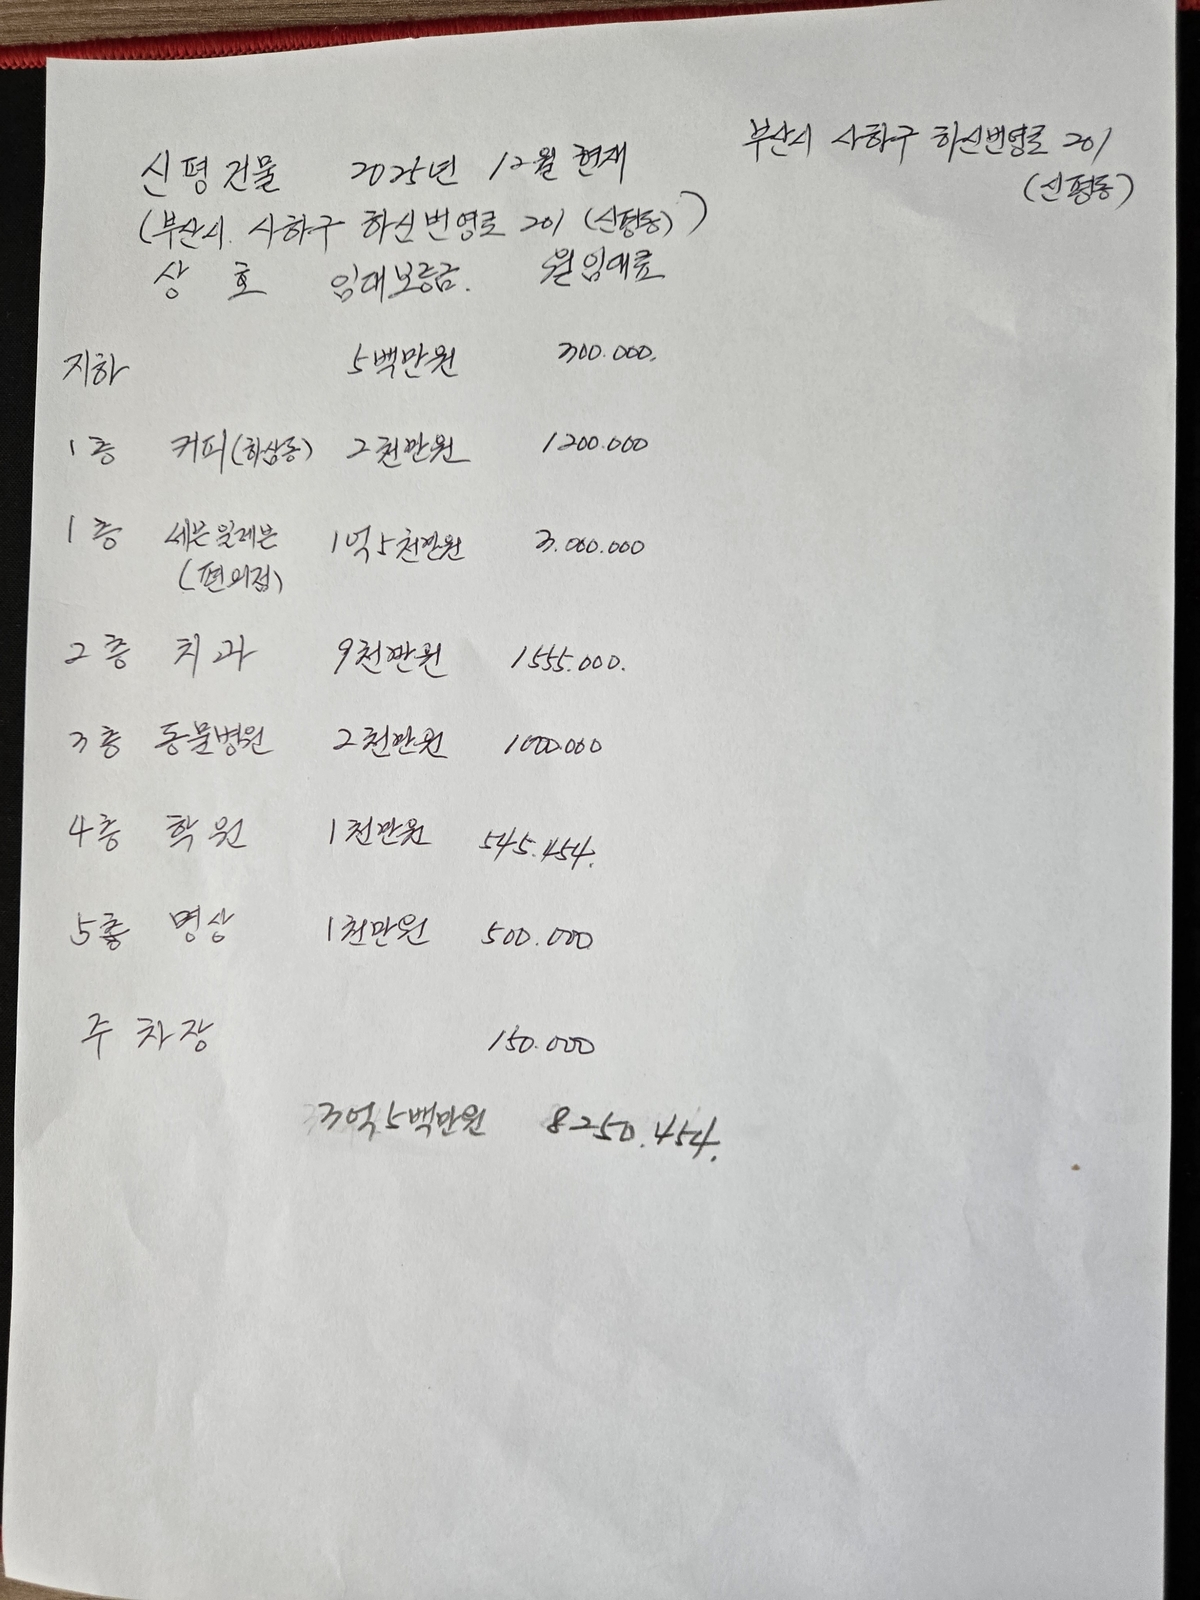 부산시 사하구 하신번영로 201
(신평동)
신평건물 2025년 12월 현재
(부산시. 사하구 하신번영로 201 (신평동))
상 호 임대보증금. 월임대료
지하 5백만원 300.000.
1층 커피(하삼동) 2천만원 1200.000
1층 세븐일레븐 1억5천만원 3.000.000
(편의점)
2층 치과 9천만원 1555.000.
3층 동물병원 2천만원 1000.000
4층 학원 1천만원 545.454.
5층 명상 1천만원 500.000
주차장 150.000
3억5백만원 8250.454.